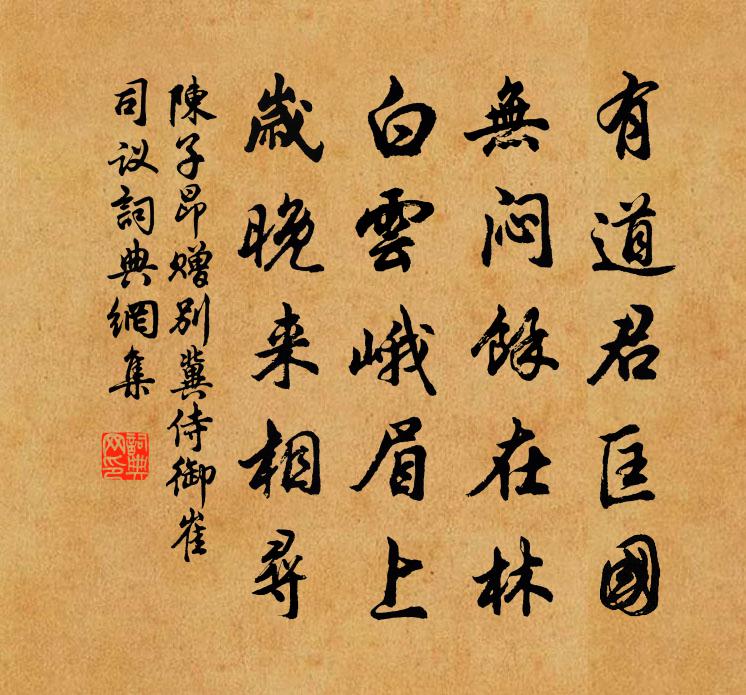 有道君匡國
無悶餘在林
白雲峨眉上
歲晚来相尋
陳子昂赠别冀侍御崔
司议詞典網集
詞典
网印